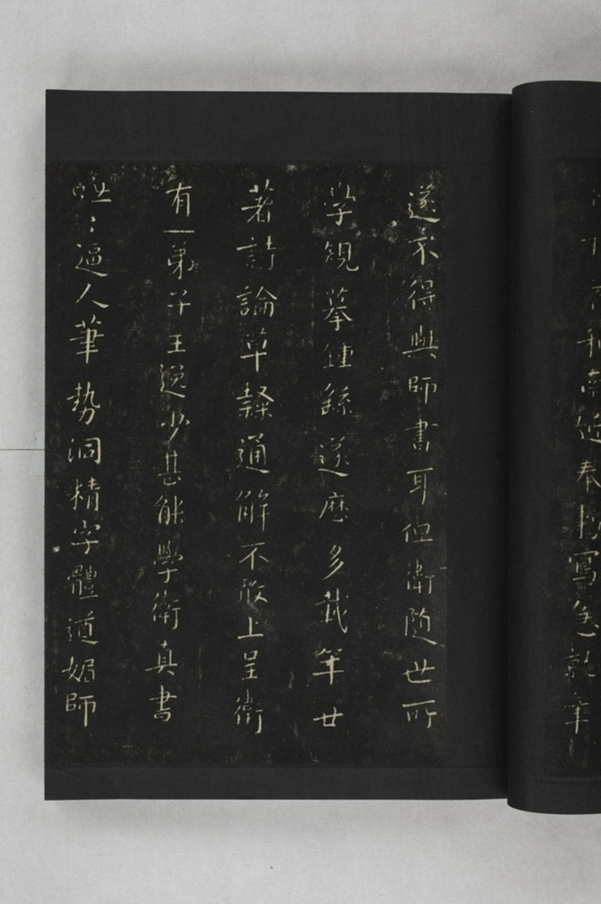 和南近奉勅寫急就章
遂不得與師書耳但衛随世所
学規摹鍾繇遂歷多載年廿
著詩論草隸通解不敢上呈衛
有一弟子王逸少甚能學衛真書
咄〻逼人筆勢洞精字體遒媚師